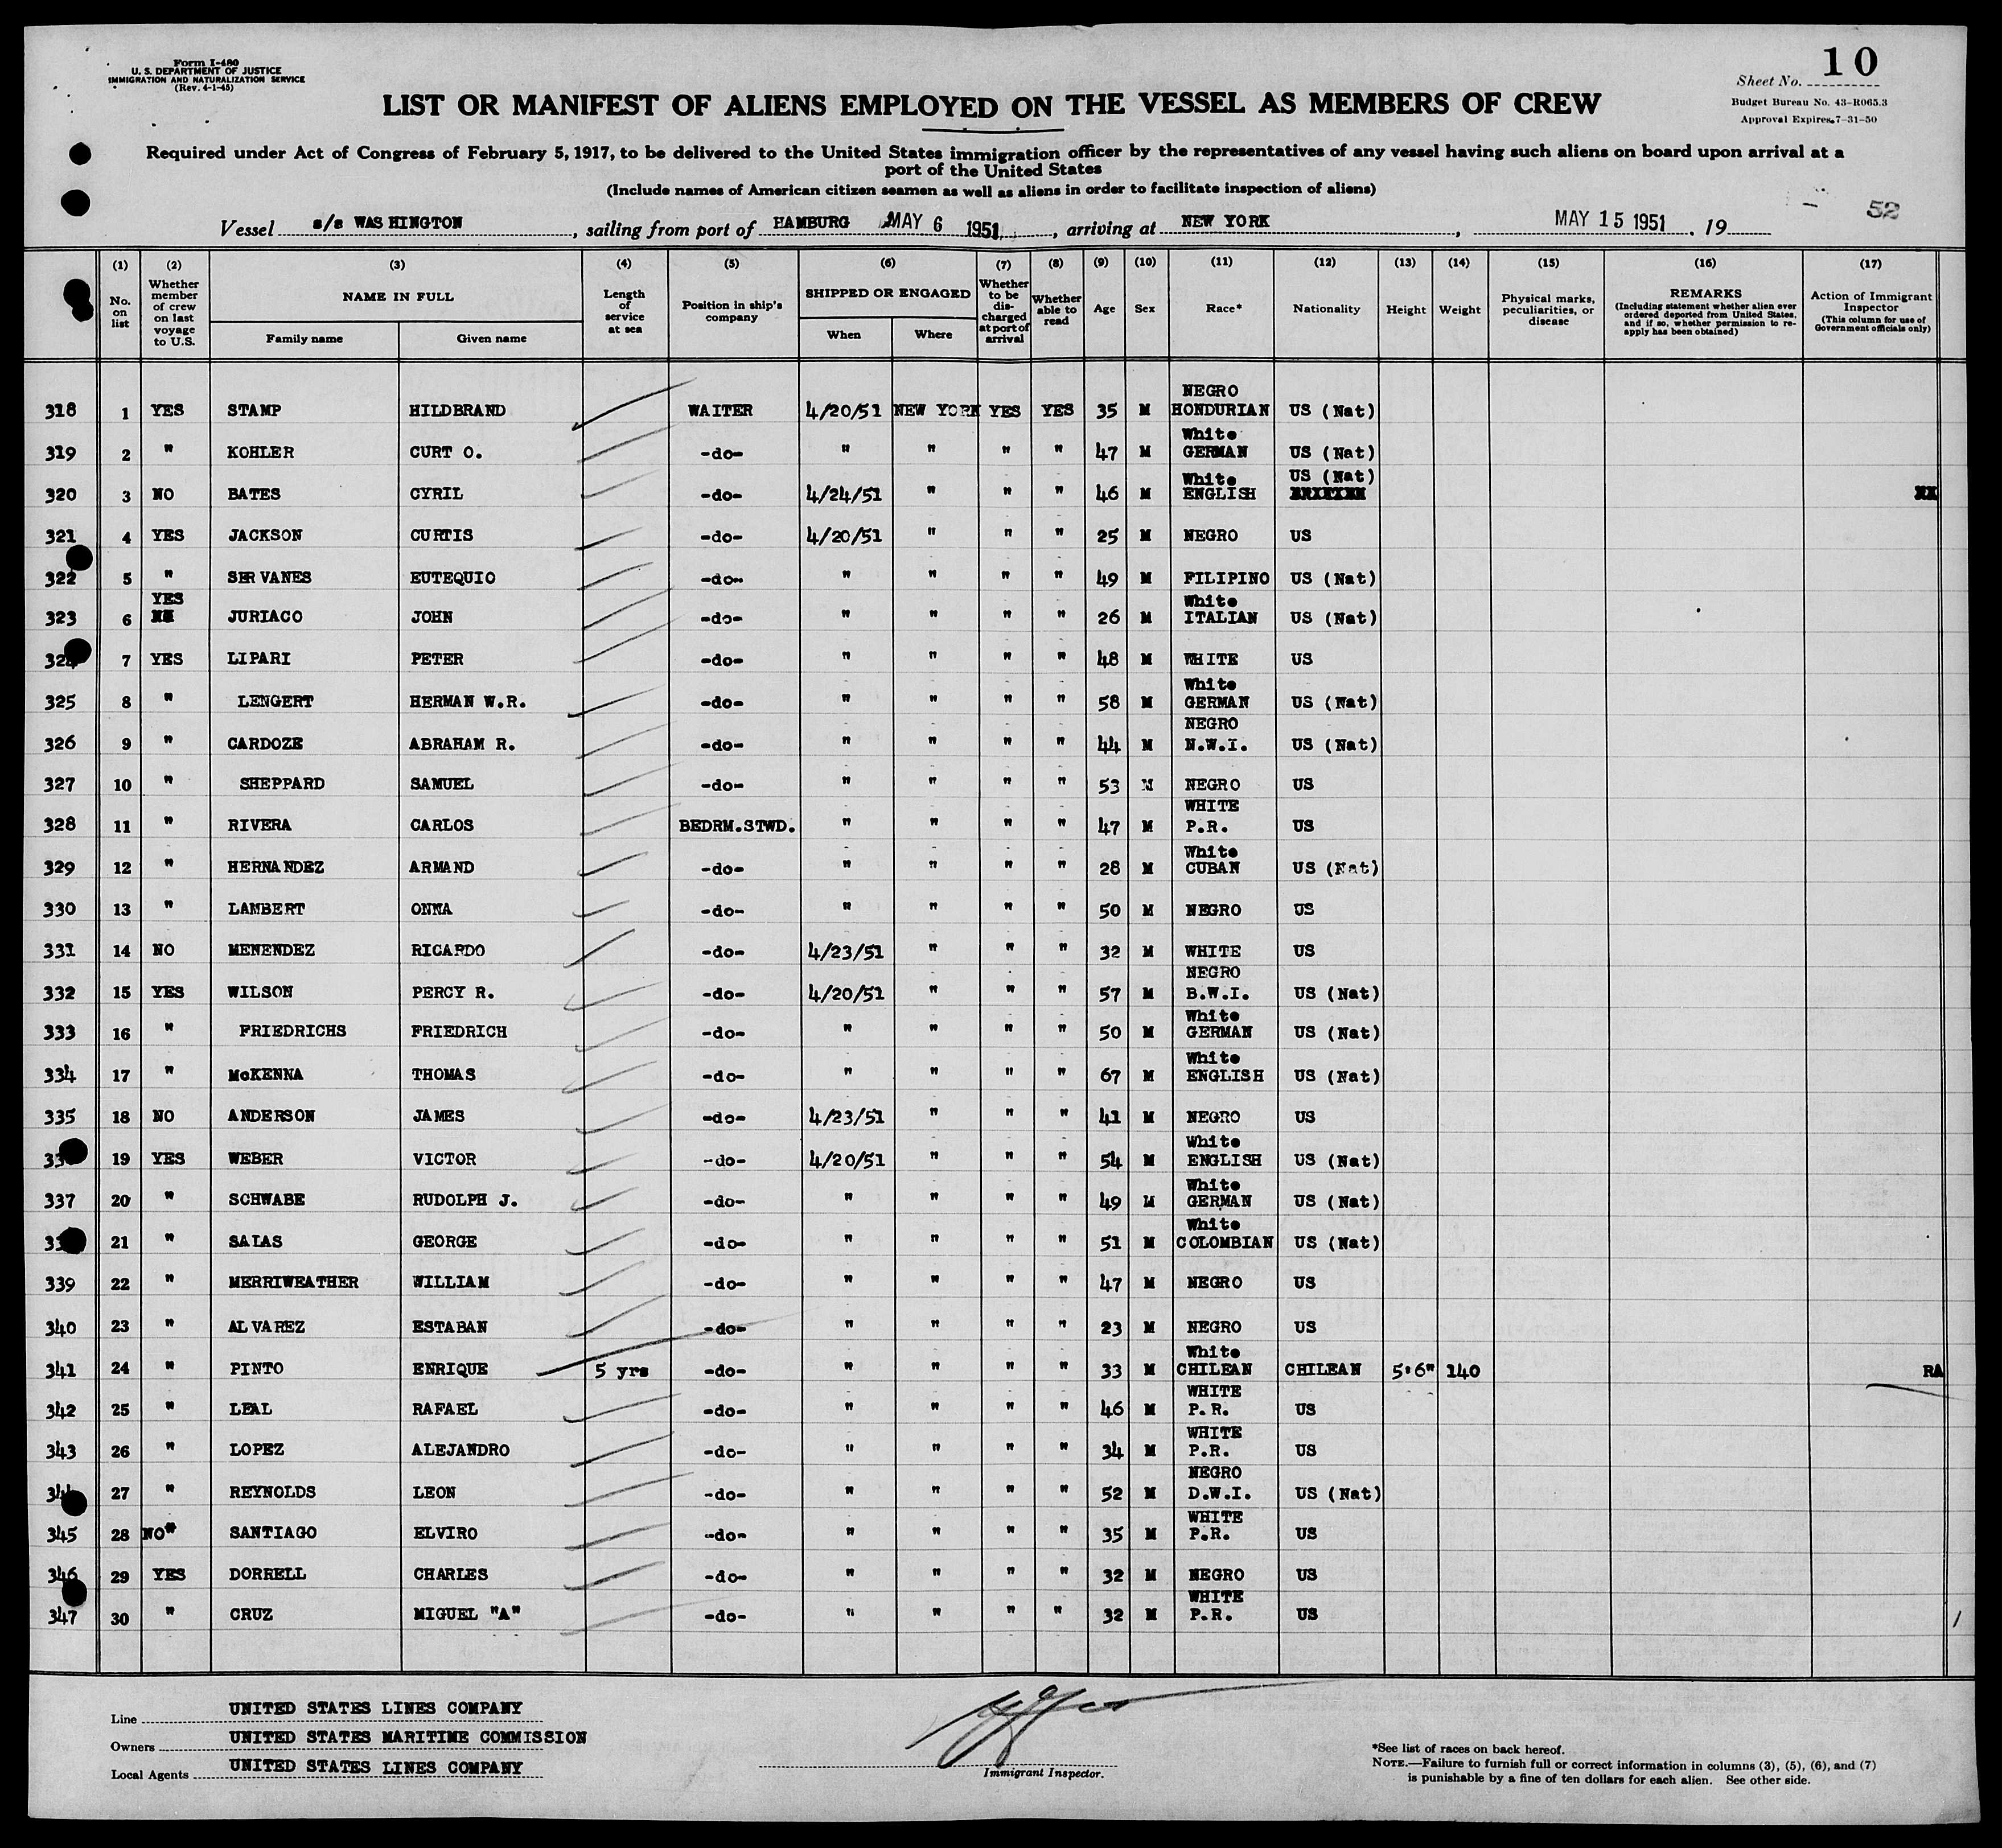 Form I-480
U. S. DEPARTMENT OF JUSTICE
IMMIGRATION AND NATURALIZATION SERVICE
(Rev. 4-1-45)
Sheet No. 10
Budget Bureau No. 43-R065.3
Approval Expires 7-31-50
LIST OR MANIFEST OF ALIENS EMPLOYED ON THE VESSEL AS MEMBERS OF CREW
Required under Act of Congress of February 5, 1917, to be delivered to the United States immigration officer by the representatives of any vessel having such aliens on board upon arrival at a
port of the United States
(Include names of American citizen seamen as well as aliens in order to facilitate inspection of aliens)
52
Vessel s/s WASHINGTON, sailing from port of HAMBURG MAY 6 1951, arriving at NEW YORK, MAY 15 1951, 19
(1) No. on list
(2) Whether member of crew on last voyage to U.S.
(3) NAME IN FULL
Family name Given name
(4) Length of service at sea
(5) Position in ship's company
(6) SHIPPED OR ENGAGED
When Where
(7) Whether to be discharged at port of arrival
(8) Whether able to read
(9) Age
(10) Sex
(11) Race*
(12) Nationality
(13) Height
(14) Weight
(15) Physical marks, peculiarities, or disease
(16) REMARKS
(Including statement whether alien ever ordered deported from United States, and if so, whether permission to re-apply has been obtained)
(17) Action of Immigrant Inspector
(This column for use of Government officials only)
318 1 YES STAMP HILDBRAND WAITER 4/20/51 NEW YORK YES YES 35 M NEGRO HONDURIAN US (Nat)
319 2 " KOHLER CURT O. -do- " " " " 47 M White GERMAN US (Nat)
320 3 NO BATES CYRIL -do- 4/24/51 " " " 46 M White ENGLISH US (Nat)
321 4 YES JACKSON CURTIS -do- 4/20/51 " " " 25 M NEGRO US
322 5 " SERVANES EUTEQUIO -do- " " " " 49 M FILIPINO US (Nat)
323 6 YES JURIACO JOHN -do- " " " " 26 M White ITALIAN US (Nat)
324 7 YES LIPARI PETER -do- " " " " 48 M WHITE US
325 8 " LENGERT HERMAN W.R. -do- " " " " 58 M White GERMAN US (Nat)
326 9 " CARDOZE ABRAHAM R. -do- " " " " 44 M NEGRO N.W.I. US (Nat)
327 10 " SHEPPARD SAMUEL -do- " " " " 53 M NEGRO US
328 11 " RIVERA CARLOS BEDRM.STWD. " " " " 47 M WHITE P.R. US
329 12 " HERNANDEZ ARMAND -do- " " " " 28 M White CUBAN US (Nat)
330 13 " LAMBERT ONNA -do- " " " " 50 M NEGRO US
331 14 NO MENENDEZ RICARDO -do- 4/23/51 " " " 32 M WHITE US
332 15 YES WILSON PERCY R. -do- 4/20/51 " " " 57 M NEGRO B.W.I. US (Nat)
333 16 " FRIEDRICHS FRIEDRICH -do- " " " " 50 M White GERMAN US (Nat)
334 17 " McKENNA THOMAS -do- " " " " 67 M White ENGLISH US (Nat)
335 18 NO ANDERSON JAMES -do- 4/23/51 " " " 41 M NEGRO US
33 19 YES WEBER VICTOR -do- 4/20/51 " " " 54 M White ENGLISH US (Nat)
337 20 " SCHWABE RUDOLPH J. -do- " " " " 49 M White GERMAN US (Nat)
33 21 " SALAS GEORGE -do- " " " " 51 M White COLOMBIAN US (Nat)
339 22 " MERRIWEATHER WILLIAM -do- " " " " 47 M NEGRO US
340 23 " ALVAREZ ESTABAN -do- " " " " 23 M NEGRO US
341 24 " PINTO ENRIQUE 5 yrs -do- " " " " 33 M White CHILEAN CHILEAN 5'6" 140 RA
342 25 " LEAL RAFAEL -do- " " " " 46 M WHITE P.R. US
343 26 " LOPEZ ALEJANDRO -do- " " " " 34 M WHITE P.R. US
344 27 " REYNOLDS LEON -do- " " " " 52 M NEGRO D.W.I. US (Nat)
345 28 NO" SANTIAGO ELVIRO -do- " " " " 35 M WHITE P.R. US
346 29 YES DORRELL CHARLES -do- " " " " 32 M NEGRO US
347 30 " CRUZ MIGUEL "A" -do- " " " " 32 M WHITE P.R. US
Line UNITED STATES LINES COMPANY
Owners UNITED STATES MARITIME COMMISSION
Local Agents UNITED STATES LINES COMPANY
Immigrant Inspector.
*See list of races on back hereof.
NOTE.—Failure to furnish full or correct information in columns (3), (5), (6), and (7)
is punishable by a fine of ten dollars for each alien. See other side.